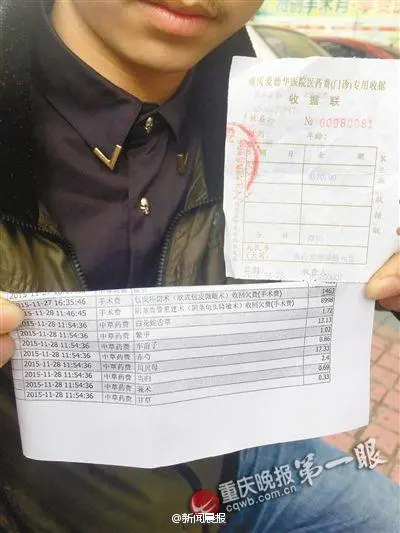 重庆爱德华医院医药费(门诊)专用收据
收据联
№ 00080081
年龄:
金额
合计
人民币
(大写)
收费人
2015-11-27 16:35:46 手术费 包皮环切术(欧式包皮微雕术)收回欠费(手术费) 1462
2015-11-27 16:45:46 手术费 收回欠费(手术费) 8998
2015-11-28 11:54:36 中草药费 白花蛇舌草 1.72
2015-11-28 11:54:36 中草药费 鳖甲 13.13
2015-11-28 11:54:36 中草药费 车前子 1.02
2015-11-28 11:54:36 中草药费 赤芍 0.86
2015-11-28 11:54:36 中草药费 川贝母 17.33
2015-11-28 11:54:36 中草药费 当归 2.4
2015-11-28 11:54:36 中草药费 莪术 0.69
2015-11-28 11:54:36 中草药费 甘草 0.33
重庆晚报 第一眼
cqwb.com.cn
@新闻晨报